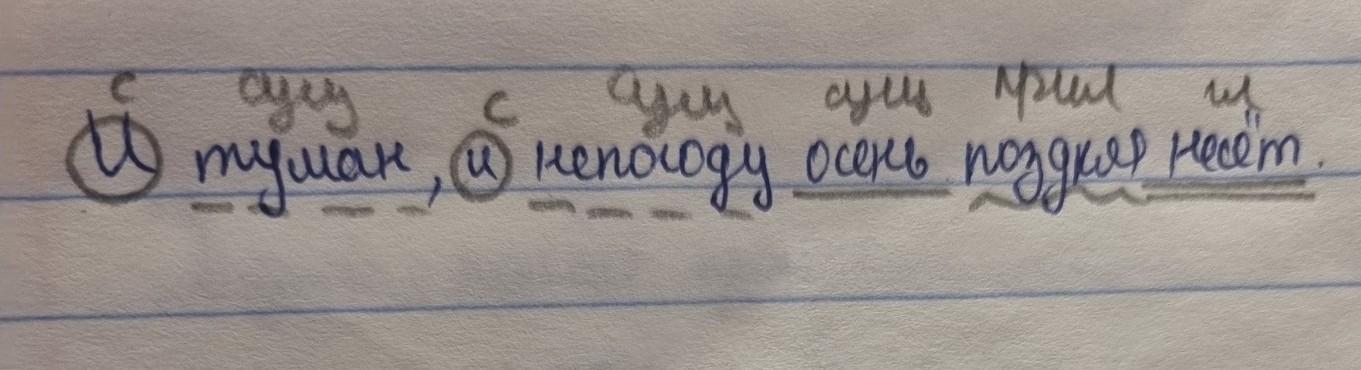 с сущ с сущ сущ прил гл
И туман, и непогоду осень поздняя несёт.